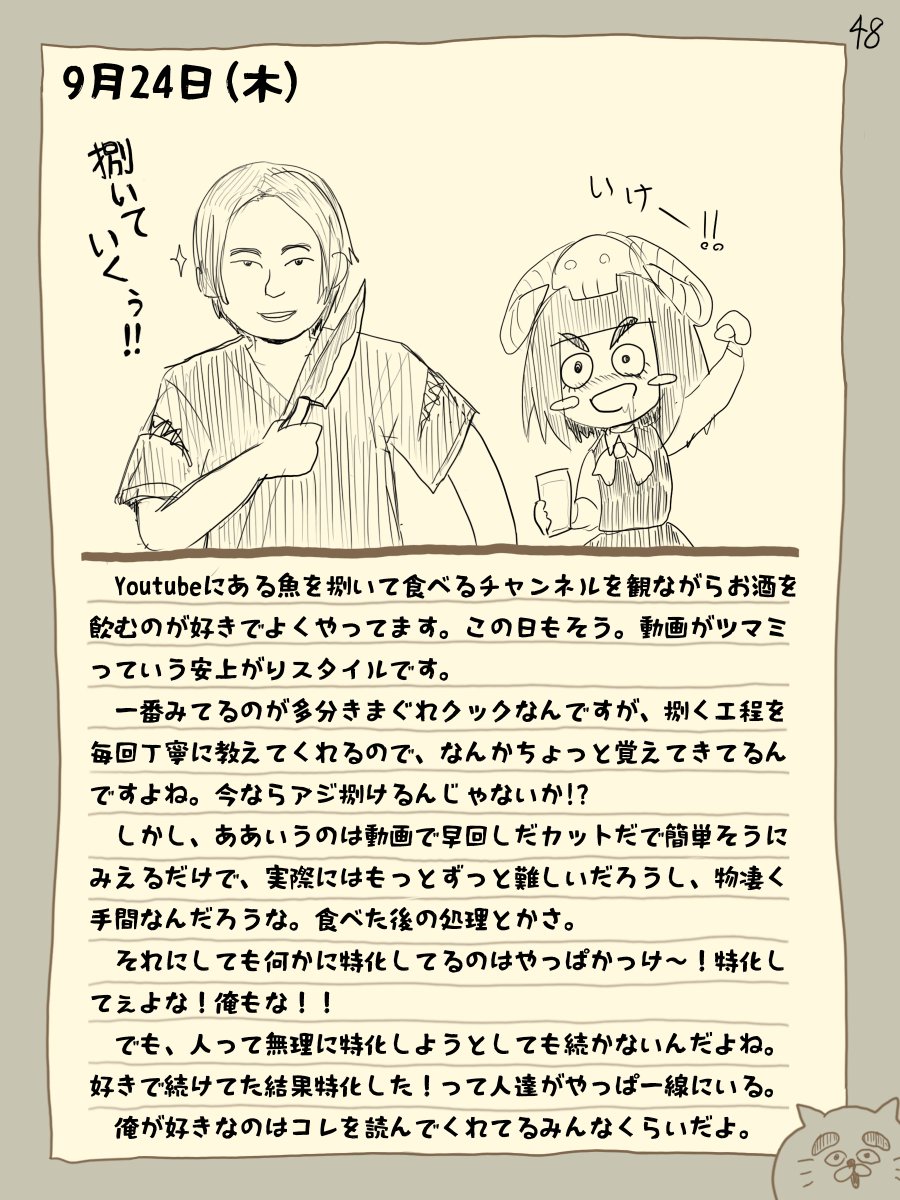 48
9月24日(木)
捌いて
いくぅ!!
いけー!!
Youtubeにある魚を捌いて食べるチャンネルを観ながらお酒を
飲むのが好きでよくやってます。この日もそう。動画がツマミ
っていう安上がりスタイルです。
一番みてるのが多分きまぐれクックなんですが、捌く工程を
毎回丁寧に教えてくれるので、なんかちょっと覚えてきてるん
ですよね。今ならアジ捌けるんじゃないか!?
しかし、ああいうのは動画で早回しだカットだで簡単そうに
みえるだけで、実際にはもっとずっと難しいだろうし、物凄く
手間なんだろうな。食べた後の処理とかさ。
それにしても何かに特化してるのはやっぱかっけ〜!特化し
てぇよな!俺もな!!
でも、人って無理に特化しようとしても続かないんだよね。
好きで続けてた結果特化した!って人達がやっぱ一線にいる。
俺が好きなのはコレを読んでくれてるみんなくらいだよ。